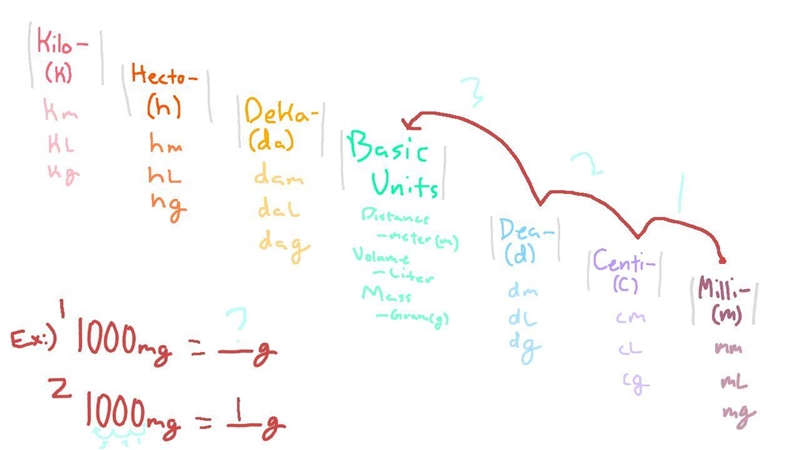 Kilo-
(K)
Km
KL
Kg
Hecto-
(h)
hm
hL
hg
DeKa-
(da)
dam
daL
dag
Basic
Units
Distance
-meter(m)
Volume
-Liter
Mass
-Gram(g)
Dea-
(d)
dm
dL
dg
Centi-
(C)
cm
cL
cg
Milli-
(m)
mm
mL
mg
3
2
1
Ex:) 1 1000mg = ?g
2 1000mg = 1g